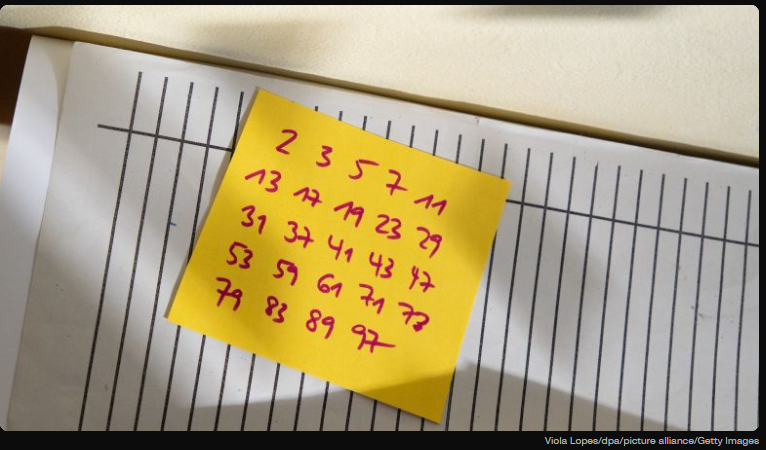 2 3 5 7 11
13 17 19 23 29
31 37 41 43 47
53 59 61 71 73
79 83 89 97
Viola Lopes/dpa/picture alliance/Getty Images